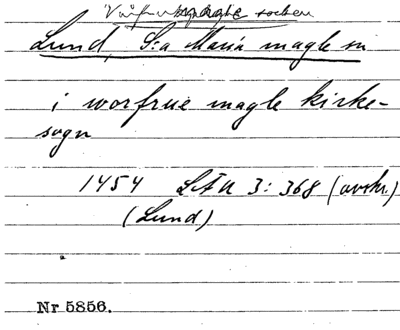 socken
Lund, S:a Maria magle sn
i worfrue magle kirke-
sogn
1454 LÄU 3:368 (avskr.)
(Lund)
Nr 5856.